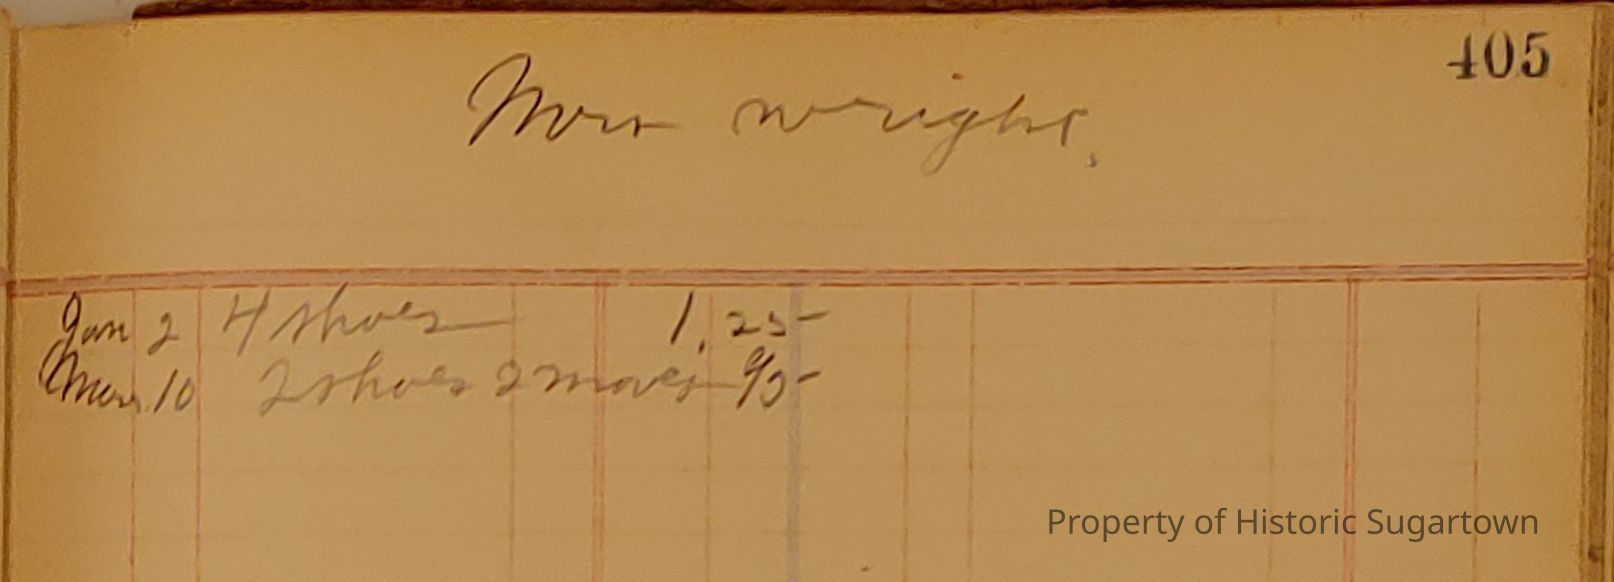 405
Mrs wright.
Jan 2 4 shoes 1.25
Mar 10 2 shoes 2 moves 95
Property of Historic Sugartown